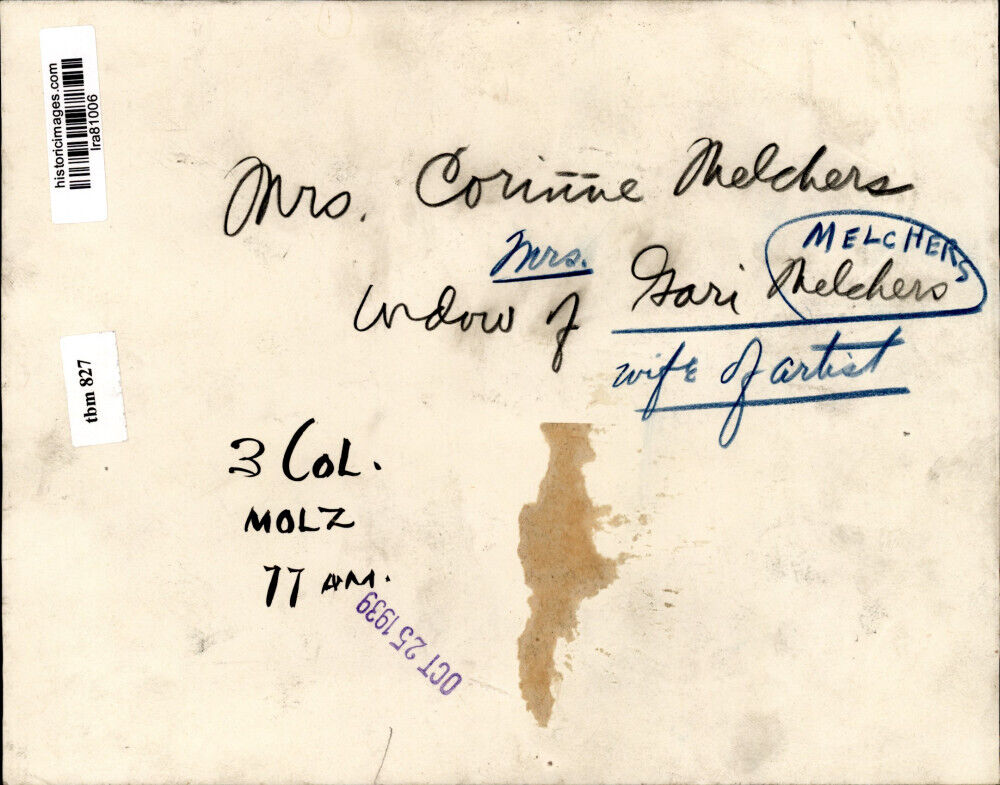 historicimages.com
lra81006
Mrs. Corinne Melchers
Mrs.
MELCHERS
widow of Gari Melchers
wife of artist
tbm 827
3 COL.
MOLZ
77 AM.
OCT 25 1939